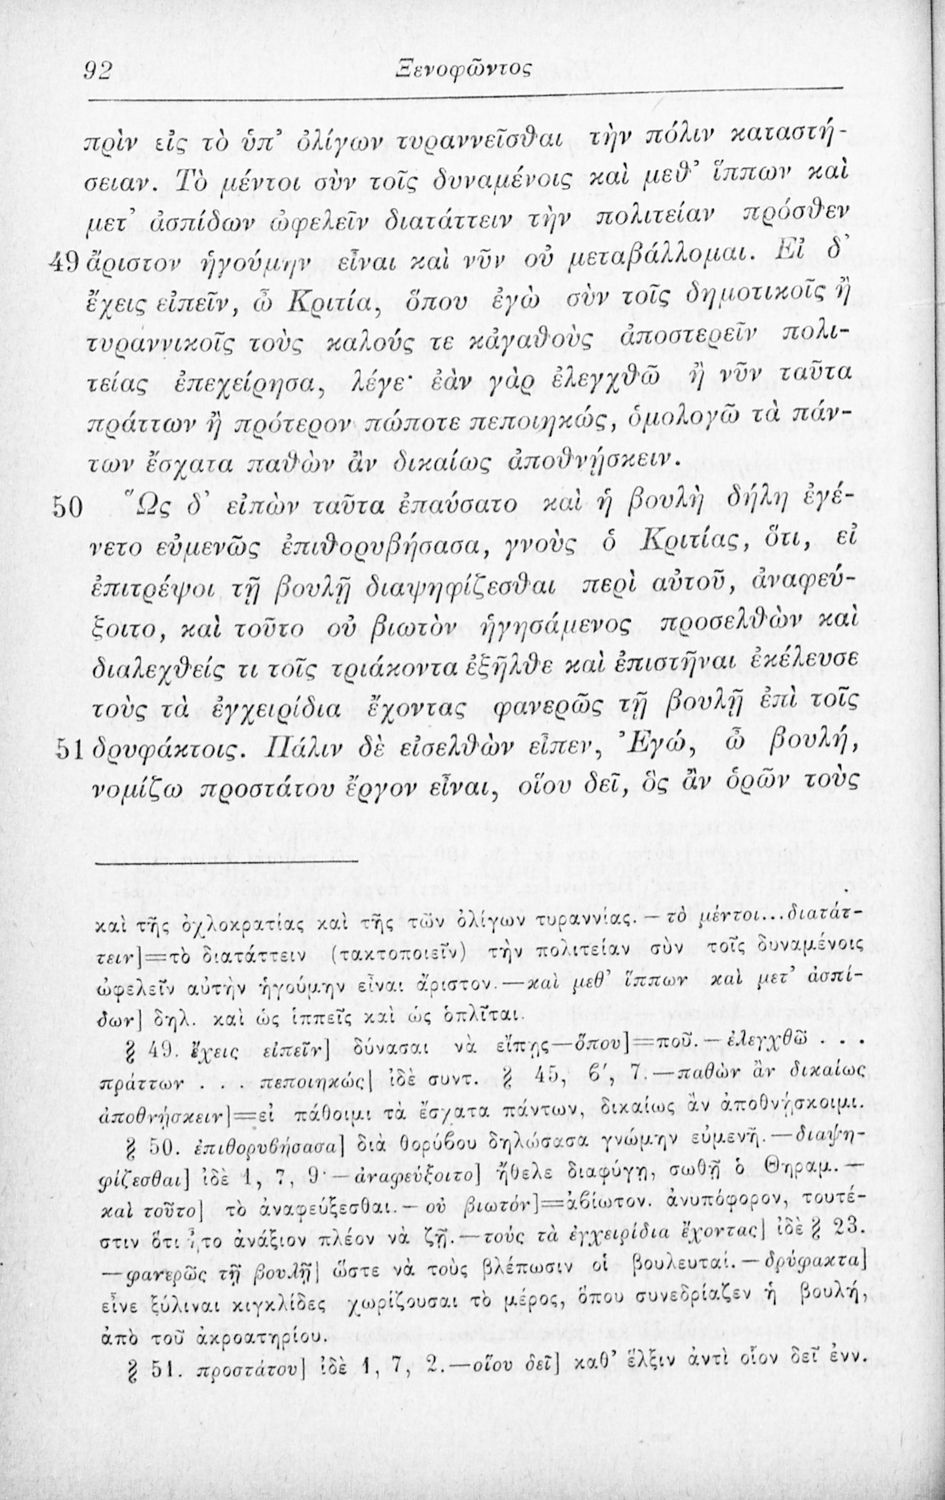 92 Ξενοφῶντος
πρὶν εἰς τὸ ὑπ’ ὀλίγων τυραννεῖσθαι τὴν πόλιν καταστή-
σειαν. Τὸ μέντοι σὺν τοῖς δυναμένοις καὶ μεθ’ ἵππων καὶ
μετ’ ἀσπίδων ὠφελεῖν διατάττειν τὴν πολιτείαν πρόσθεν
49 ἄριστον ἡγούμην εἶναι καὶ νῦν οὐ μεταβάλλομαι. Εἰ δ’
ἔχεις εἰπεῖν, ὦ Κριτία, ὅπου ἐγὼ σὺν τοῖς δημοτικοῖς ἢ
τυραννικοῖς τοὺς καλούς τε κἀγαθοὺς ἀποστερεῖν πολι-
τείας ἐπεχείρησα, λέγε· ἐὰν γὰρ ἐλεγχθῶ ἢ νῦν ταῦτα
πράττων ἢ πρότερον πώποτε πεποιηκώς, ὁμολογῶ τὰ πάν-
των ἔσχατα παθὼν ἂν δικαίως ἀποθνῄσκειν.
50 Ὡς δ’ εἰπὼν ταῦτα ἐπαύσατο καὶ ἡ βουλὴ δήλη ἐγέ-
νετο εὐμενῶς ἐπιθορυβήσασα, γνοὺς ὁ Κριτίας, ὅτι, εἰ
ἐπιτρέψοι τῇ βουλῇ διαψηφίζεσθαι περὶ αὐτοῦ, ἀναφεύ-
ξοιτο, καὶ τοῦτο οὐ βιωτὸν ἡγησάμενος προσελθὼν καὶ
διαλεχθείς τι τοῖς τριάκοντα ἐξῆλθε καὶ ἐπιστῆναι ἐκέλευσε
τοὺς τὰ ἐγχειρίδια ἔχοντας φανερῶς τῇ βουλῇ ἐπὶ τοῖς
51 δρυφάκτοις. Πάλιν δὲ εἰσελθὼν εἶπεν, Ἐγώ, ὦ βουλή,
νομίζω προστάτου ἔργον εἶναι, οἵου δεῖ, ὃς ἂν ὁρῶν τοὺς
καὶ τῆς ὀχλοκρατίας καὶ τῆς τῶν ὀλίγων τυραννίας. — τὸ μέντοι...διατάτ-
τειν]=τὸ διατάττειν (τακτοποιεῖν) τὴν πολιτείαν σὺν τοῖς δυναμένοις
ὠφελεῖν αὐτὴν ἡγούμην εἶναι ἄριστον.—καὶ μεθ’ ἵππων καὶ μετ’ ἀσπί-
δων] δηλ. καὶ ὡς ἱππεῖς καὶ ὡς ὁπλῖται.
§ 49. ἔχεις εἰπεῖν] δύνασαι νὰ εἴπῃς—ὅπου]=ποῦ. — ἐλεγχθῶ . . .
πράττων . . . πεποιηκώς] ἰδὲ συντ. § 45, 6′, 7.—παθὼν ἂν δικαίως
ἀποθνῄσκειν]=εἰ πάθοιμι τὰ ἔσχατα πάντων, δικαίως ἂν ἀποθνῄσκοιμι.
§ 50. ἐπιθορυβήσασα] διὰ θορύβου δηλώσασα γνώμην εὐμενῆ.—διαψη-
φίζεσθαι] ἰδὲ 1, 7, 9·—ἀναφεύξοιτο] ἤθελε διαφύγῃ, σωθῇ ὁ Θηραμ. —
καὶ τοῦτο] τὸ ἀναφεύξεσθαι.— οὐ βιωτόν]=ἀβίωτον, ἀνυπόφορον, τουτέ-
στιν ὅτι ἦτο ἀνάξιον πλέον νὰ ζῇ.—τοὺς τὰ ἐγχειρίδια ἔχοντας] ἰδὲ § 23.
—φανερῶς τῇ βουλῇ] ὥστε νὰ τοὺς βλέπωσιν οἱ βουλευταί. — δρύφακτα]
εἶνε ξύλιναι κιγκλίδες χωρίζουσαι τὸ μέρος, ὅπου συνεδρίαζεν ἡ βουλή,
ἀπὸ τοῦ ἀκροατηρίου.
§ 51. προστάτου] ἰδὲ 1, 7, 2.—οἵου δεῖ] καθ’ ἕλξιν ἀντὶ οἷον δεῖ ἐνν.